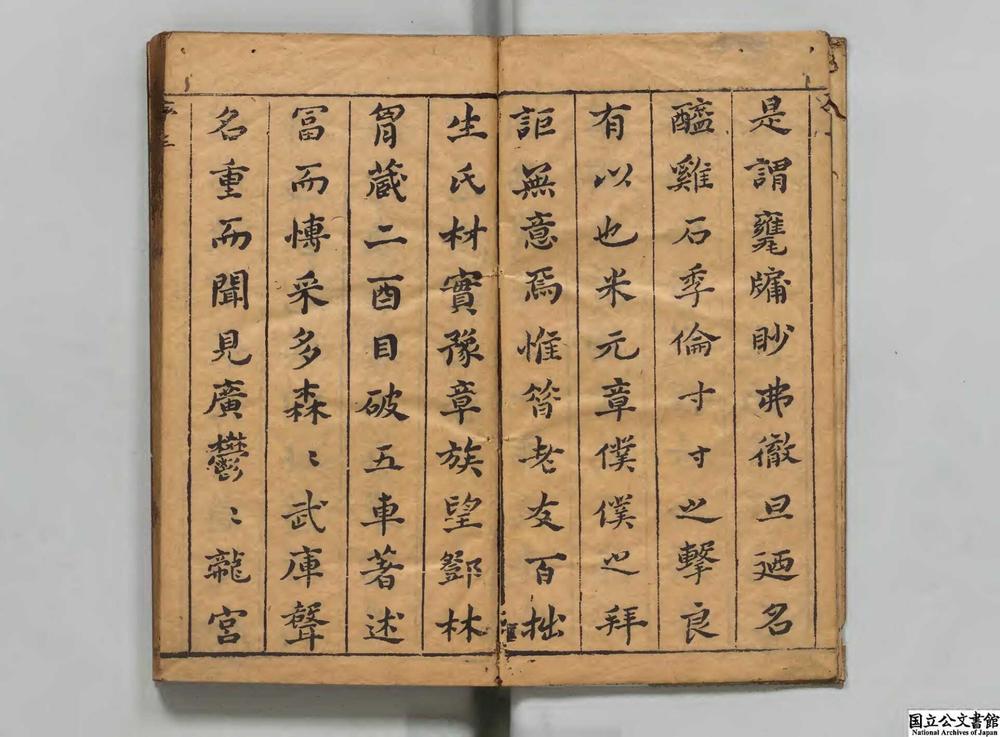 是謂甕牖眇弗徹旦廼名
醯雞石季倫寸寸之擊良
有以也米元章僕僕之拜
詎無意焉惟筠老友百拙
生氏材實豫章族望鄧林
胷藏二酉目破五車著述
富而慱采多森〻武庫聲
名重而聞見廣鬱〻龍宮
国立公文書館
National Archives of Japan